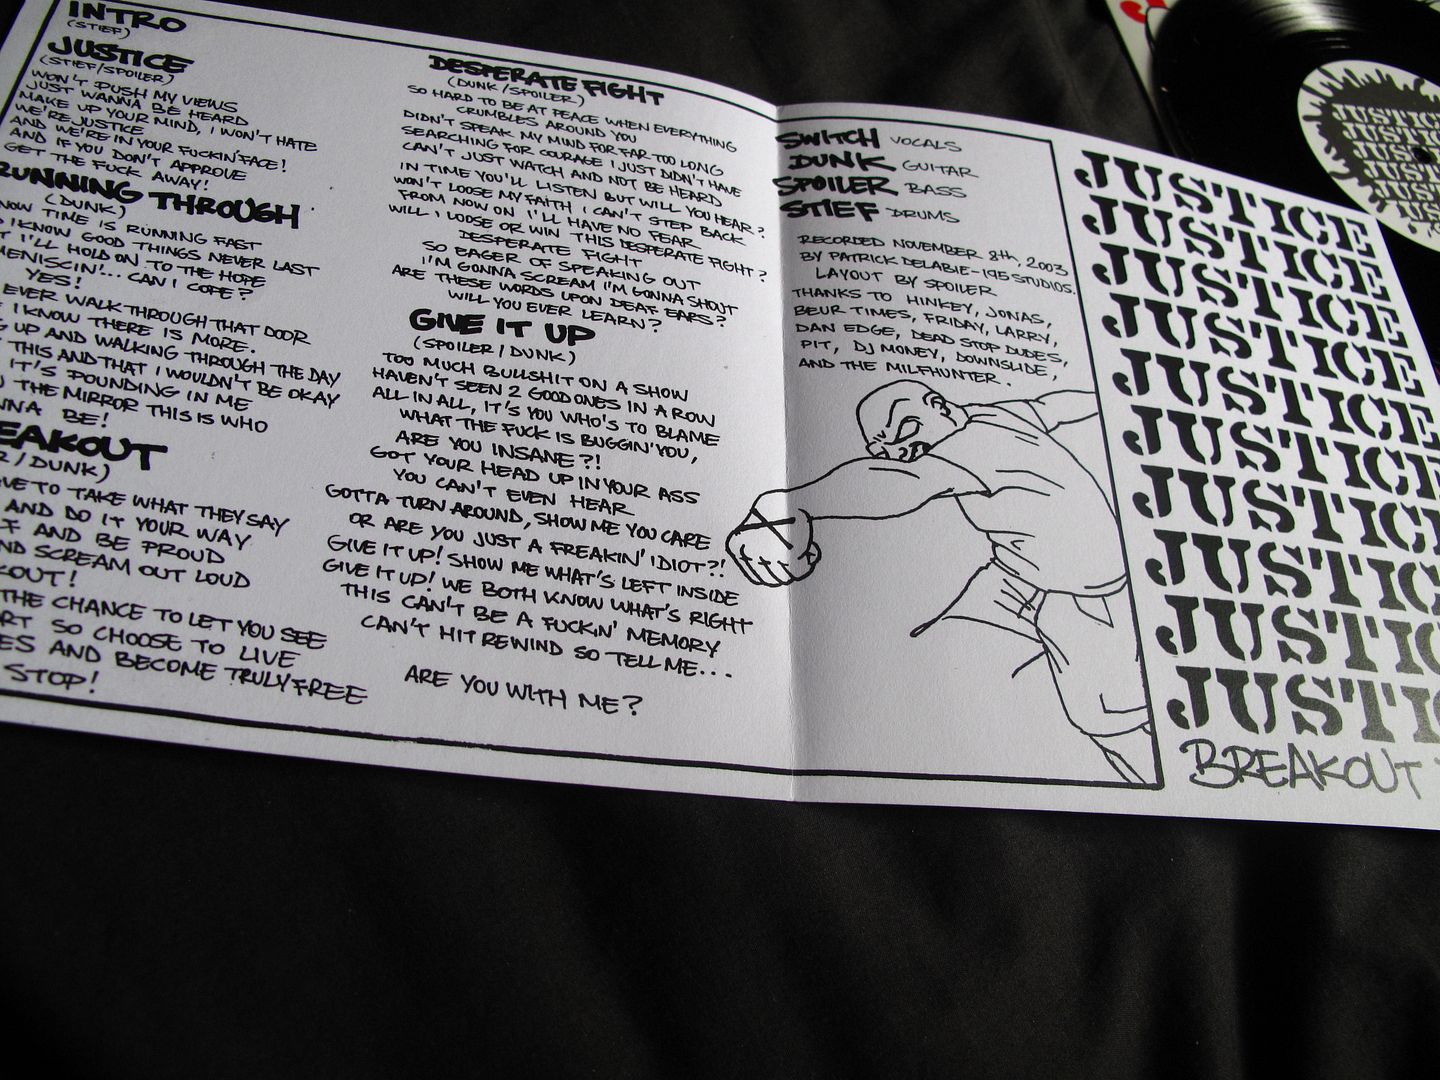 INTRO
(STIEF)
JUSTICE
(STIEF/SPOILER)
WON'T PUSH MY VIEWS
JUST WANNA BE HEARD
MAKE UP YOUR MIND, I WON'T HATE
WE'RE JUSTICE
AND WE'RE IN YOUR FUCKIN' FACE!
AND IF YOU DON'T APPROVE
GET THE FUCK AWAY!
RUNNING THROUGH
(DUNK)
NOW TIME IS RUNNING FAST
I KNOW GOOD THINGS NEVER LAST
I'LL HOLD ON TO THE HOPE
CAN I COPE?
YES!
EVER WALK THROUGH THAT DOOR
I KNOW THERE IS MORE.
UP AND WALKING THROUGH THE DAY
THIS AND THAT I WOULDN'T BE OKAY
IT'S POUNDING IN ME
THE MIRROR THIS IS WHO
BE!
EAKOUT
/DUNK)
TO TAKE WHAT THEY SAY
AND DO IT YOUR WAY
AND BE PROUD
SCREAM OUT LOUD
OUT!
THE CHANCE TO LET YOU SEE
SO CHOOSE TO LIVE
AND BECOME TRULY FREE
STOP!
DESPERATE FIGHT
(DUNK/SPOILER)
SO HARD TO BE AT PEACE WHEN EVERYTHING
CRUMBLES AROUND YOU
DIDN'T SPEAK MY MIND FOR FAR TOO LONG
SEARCHING FOR COURAGE I JUST DIDN'T HAVE
CAN'T JUST WATCH AND NOT BE HEARD
IN TIME YOU'LL LISTEN BUT WILL YOU HEAR?
WON'T LOOSE MY FAITH I CAN'T STEP BACK
FROM NOW ON I'LL HAVE NO FEAR
WILL I LOOSE OR WIN THIS DESPERATE FIGHT?
DESPERATE FIGHT
SO EAGER OF SPEAKING OUT
I'M GONNA SCREAM I'M GONNA SHOUT
ARE THESE WORDS UPON DEAF EARS?
WILL YOU EVER LEARN?
GIVE IT UP
(SPOILER/DUNK)
TOO MUCH BULLSHIT ON A SHOW
HAVEN'T SEEN 2 GOOD ONES IN A ROW
ALL IN ALL, IT'S YOU WHO'S TO BLAME
WHAT THE FUCK IS BUGGIN' YOU,
ARE YOU INSANE?!
GOT YOUR HEAD UP IN YOUR ASS
YOU CAN'T EVEN HEAR
GOTTA TURN AROUND, SHOW ME YOU CARE
OR ARE YOU JUST A FREAKIN' IDIOT?!
GIVE IT UP! SHOW ME WHAT'S LEFT INSIDE
GIVE IT UP! WE BOTH KNOW WHAT'S RIGHT
THIS CAN'T BE A FUCKIN' MEMORY
CAN'T HIT REWIND SO TELL ME...
ARE YOU WITH ME?
SWITCH VOCALS
DUNK GUITAR
SPOILER BASS
STIEF DRUMS
RECORDED NOVEMBER 8th, 2003
BY PATRICK DELABIE-195 STUDIOS.
LAYOUT BY SPOILER
THANKS TO HINKEY, JONAS,
BEUR TIMES, FRIDAY, LARRY,
DAN EDGE, DEAD STOP DUDES,
PIT, DJ MONEY, DOWNSLIDE,
AND THE MILFHUNTER.
JUSTICE
JUSTICE
JUSTICE
JUSTICE
JUSTICE
JUSTICE
JUSTICE
JUSTICE
JUSTIC
JUSTIC
BREAKOUT
JUSTICE
JUSTICE
JUSTICE